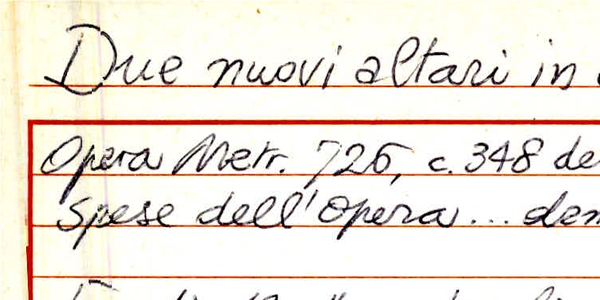 Due nuovi altari in
Opera Metr. 726, c. 348 de
Spese dell'Opera... den